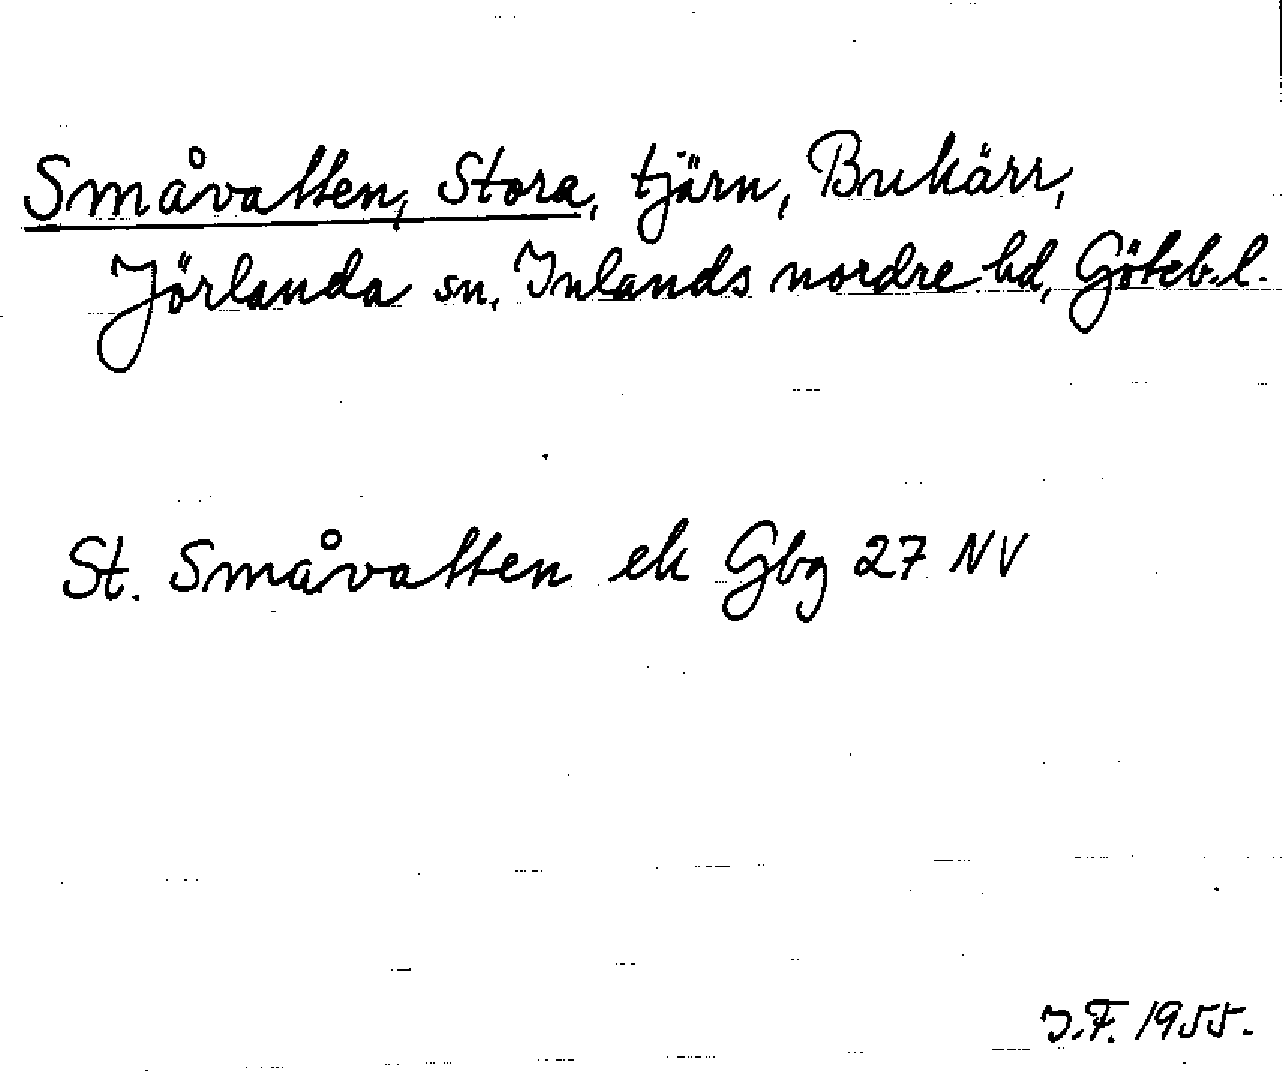 Småvatten, Stora, tjärn, Bukärr,
Jörlanda sn, Inlands nordre hd, Göteb. l.
St. Småvatten ek Gbg 27 NV
J.F. 1955.